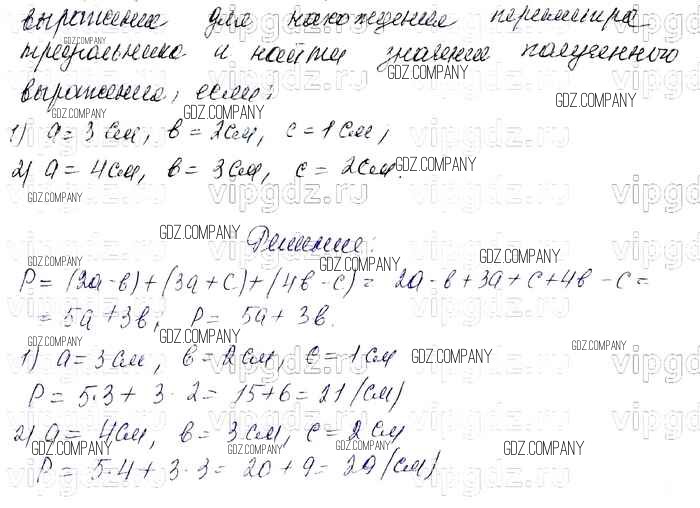 выражение для нахождения периметра
треугольника и найти значения полученного
выражения, если:
1) a = 3 см, в = 2 см, c = 1 см,
2) a = 4 см, в = 3 см, c = 2 см.
Решение:
P = (2a - в) + (3a + c) + (4в - c) = 2a - в + 3a + c + 4в - c =
= 5a + 3в; P = 5a + 3в.
1) a = 3 см, в = 2 см, c = 1 см
P = 5·3 + 3·2 = 15 + 6 = 21 (см)
2) a = 4 см, в = 3 см, c = 2 см
P = 5·4 + 3·3 = 20 + 9 = 29 (см)